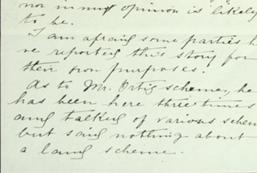 nor in my opinion is likely
to be.
I am afraid some parties h
ve reported this story for
their own purposes.
As to Mr. Ortiz scheme, he
has been here three times
and talked of various schem
but said nothing about
a land scheme.